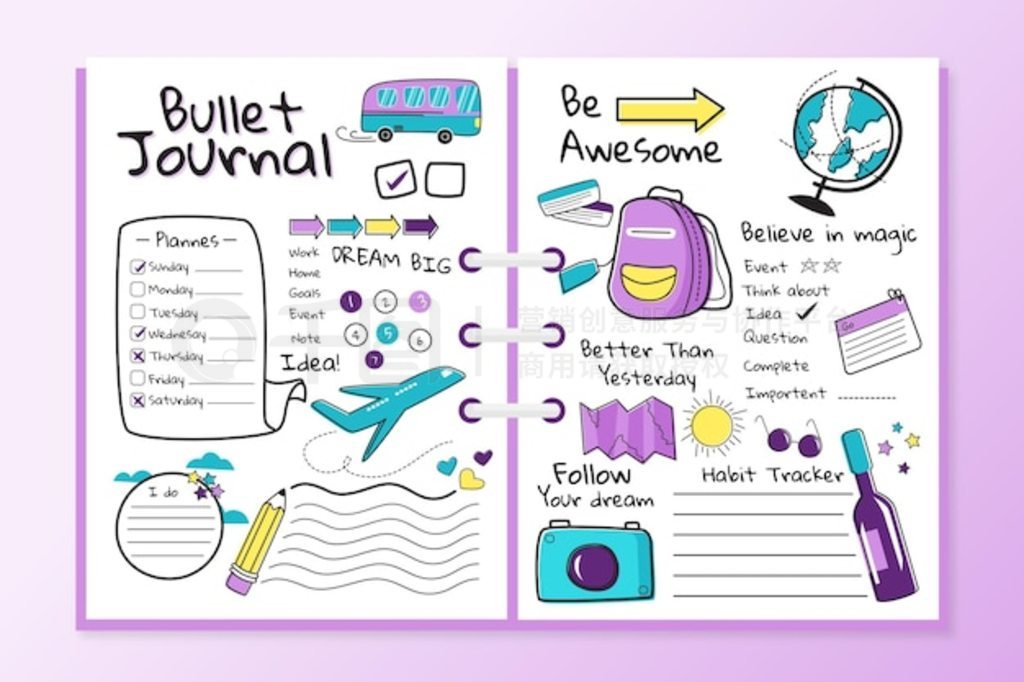 Bullet
Journal
Plannes
Sunday
Monday
Tuesday
Wednesay
Thursday
Friday
Saturday
Work
Home
Goals
Event
Note
DREAM BIG
1 2 3
4 5 6
7
Idea!
I do
Be
Awesome
Believe in magic
Event
Think about
Idea
Question
Complete
Importent
Go
Better Than
Yesterday
Follow
Your dream
Habit Tracker
营销创意服务与协作平台
商用请获取授权